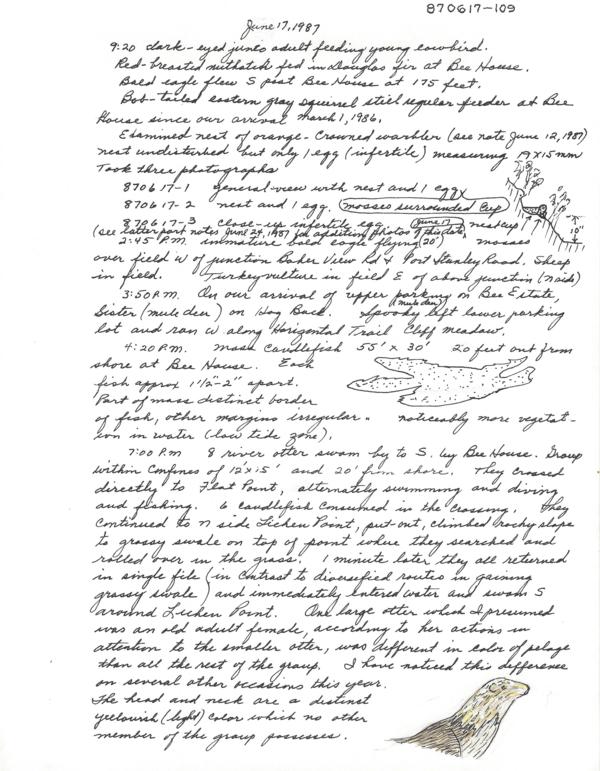 870617-109
June 17, 1987
9:20 dark-eyed junco adult feeding young cowbird.
Red-breasted nuthatch fed in Douglas fir at Bee House.
Bald eagle flew S past Bee House at 175 feet.
Bob-tailed eastern gray squirrel still regular feeder at Bee
House since our arrival March 1, 1986.
Examined nest of orange-crowned warbler (see note June 12, 1987)
nest undisturbed but only 1 egg (infertile) measuring 19 x 15 mm
Took three photographs
870617-1 general-view with nest and 1 egg
870617-2 nest and 1 egg. mosses surrounded cup
870617-3 close-up infertile egg June 17 nest cup
(see latter part notes June 24, 1987 for addition photos of this date)
10"
2:45 P.M. immature bald eagle flying (20') mosses
over field W of junction Baker View Rd & Port Stanley Road. Sheep
in field. Turkey vulture in field E of above junction (N side)
3:50 P.M. On our arrival of upper parking on Bee Estate,
(mule deer)
Sister (mule deer) on Hog Back. Spooky left lower parking
lot and ran W along Horizontal Trail Cliff meadow.
4:20 P.M. Mass candlefish 55' x 30' 20 feet out from
shore at Bee House. Each
fish approx 1½"-2" apart.
Part of mass distinct border
of fish, other margins irregular. noticeably more vegetat-
ion in water (low tide zone).
7:00 P.M 8 river otter swam by to S. by Bee House. Group
within confines of 12' x 15' and 20' from shore. They crossed
directly to Flat Point, alternately swimming and diving
and fishing. 6 candlefish consumed in the crossing. They
continued to N side Lichen Point, put-out, climbed rocky slope
to grassy swale on top of point where they searched and
rolled over in the grass. 1 minute later they all returned
in single file (in contrast to diversified routes in gaining
grassy swale) and immediately entered water and swam S
around Lichen Point. One large otter which I presumed
was an old adult female, according to her actions in
attention to the smaller otter, was different in color of pelage
than all the rest of the group. I have noticed this difference
on several other occasions this year.
The head and neck are a distinct
yellowish (light) color which no other
member of the group possesses.